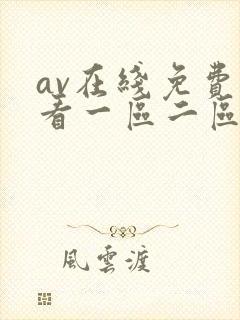 av在綫免費
看一區二區
風雲渡